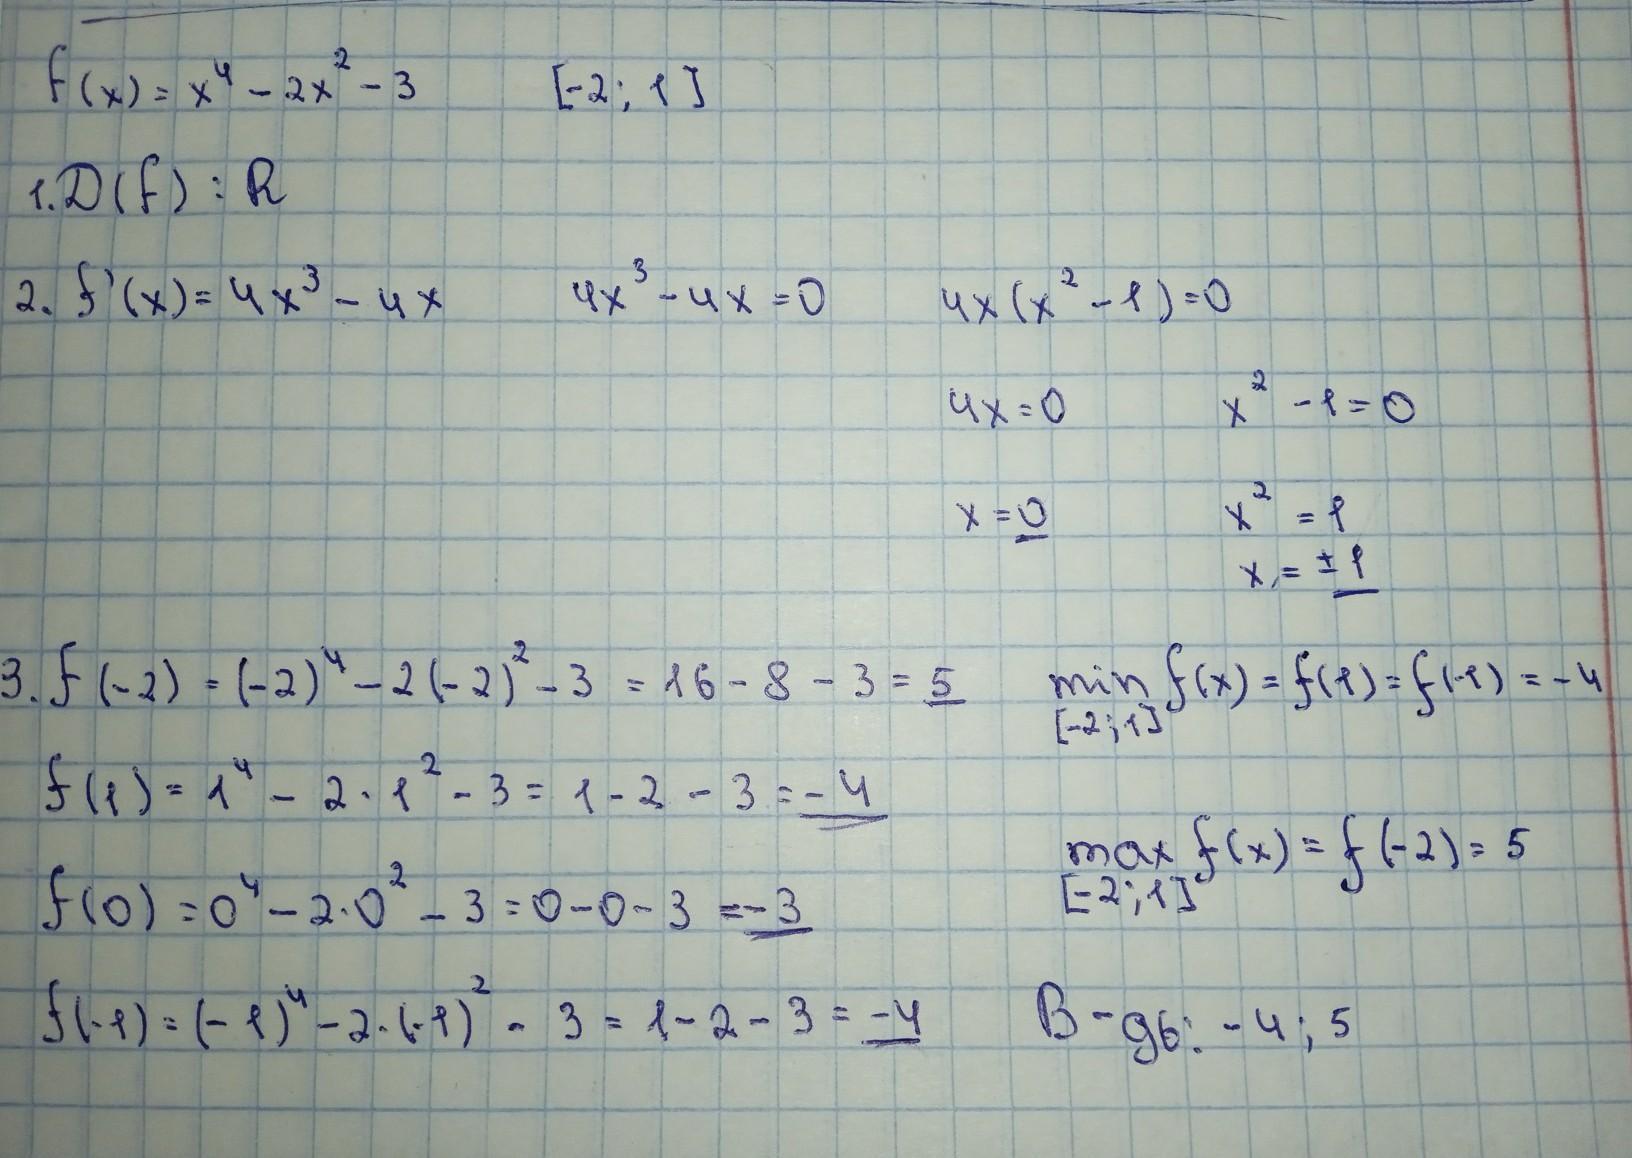 f(x) = x⁴ - 2x² - 3 [-2; 1]
1. D(f) : R
2. f'(x) = 4x³ - 4x 4x³ - 4x = 0 4x(x² - 1) = 0
4x = 0 x² - 1 = 0
x = 0 x² = 1
x = ± 1
3. f(-2) = (-2)⁴ - 2(-2)² - 3 = 16 - 8 - 3 = 5 min f(x) = f(1) = f(-1) = -4
[-2; 1]
f(1) = 1⁴ - 2·1² - 3 = 1 - 2 - 3 = -4
max f(x) = f(-2) = 5
[-2; 1]
f(0) = 0⁴ - 2·0² - 3 = 0 - 0 - 3 = -3
f(-1) = (-1)⁴ - 2·(-1)² - 3 = 1 - 2 - 3 = -4 В-дь: -4; 5